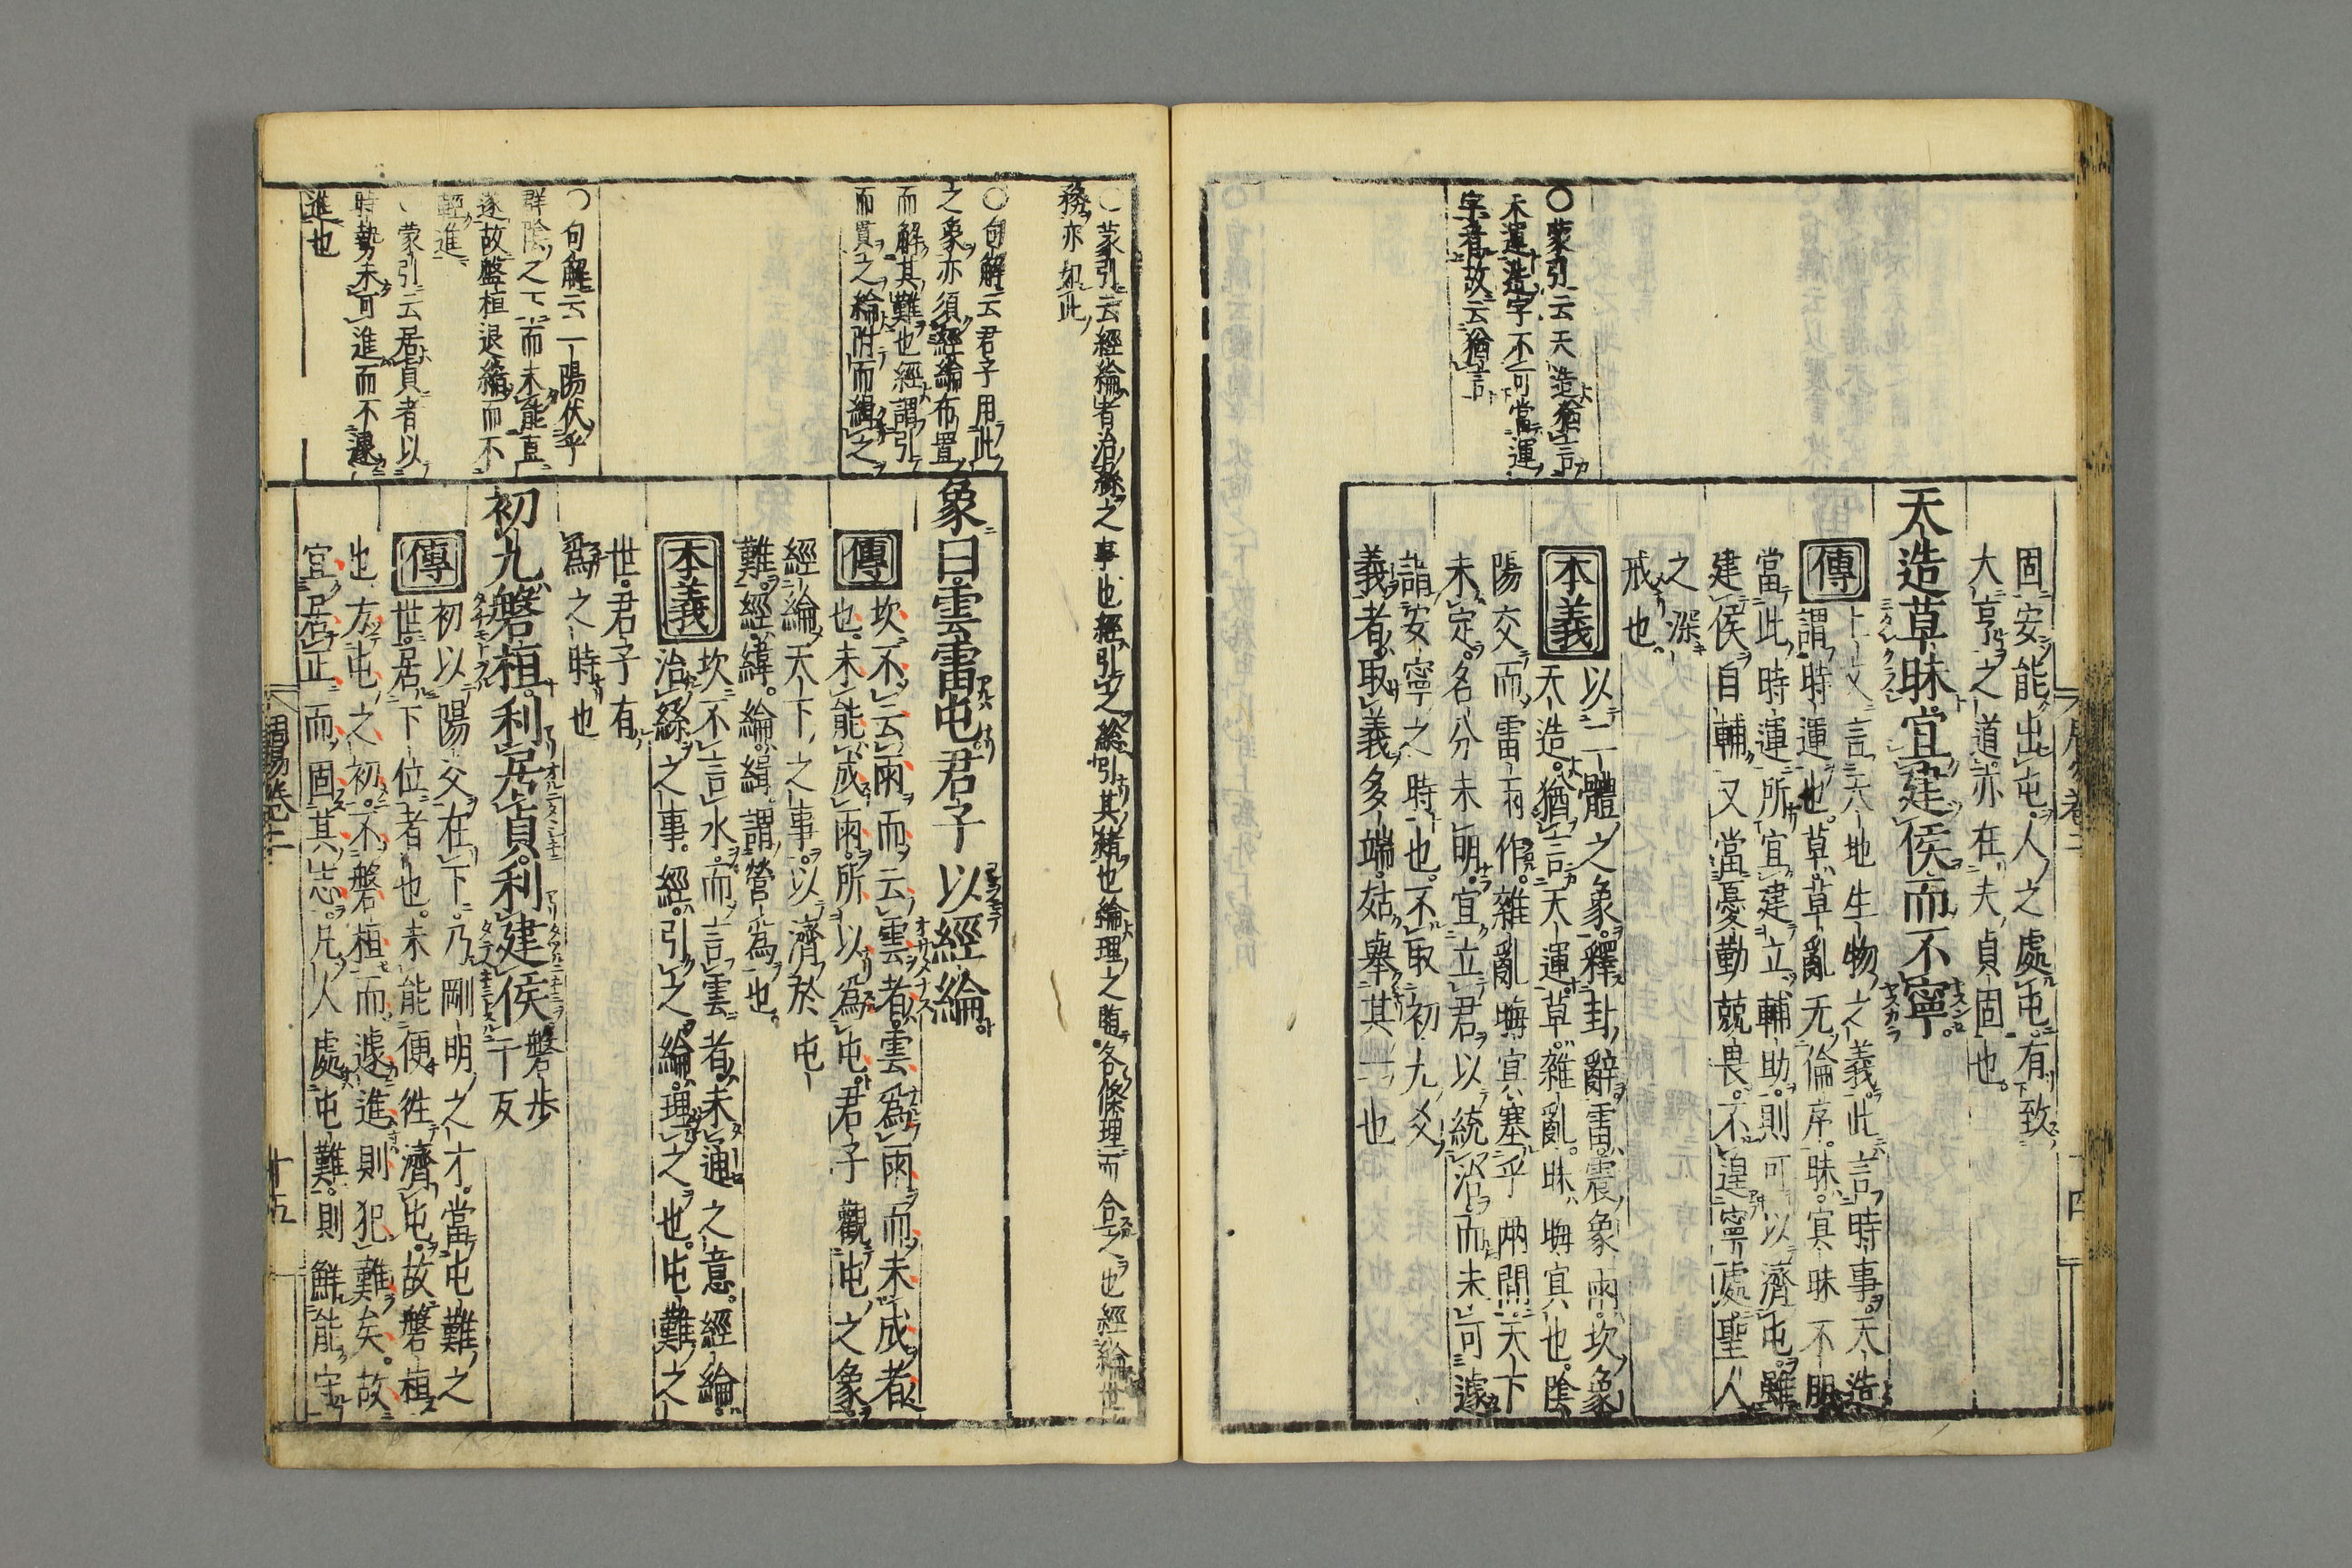 固安能出屯人之處屯有致
大亨之道亦在夫貞固也
天造草昧宜建侯而不寧
傳
上文言天地生物之義此言時事天造
謂時運也草草亂无倫序昧冥昧不明
當此時運所宜建立輔助則可以濟屯雖
建侯自輔又當憂勤兢畏不遑寧處聖人
之深
戒也
本義
以二體之象釋卦辭雷震象雨坎象
天造猶言天運草雜亂昧晦冥也陰
陽交而雷雨作雜亂晦冥塞乎兩間天下
未定名分未明宜立君以統治而未可遽
謂安寧之時也不取初九爻
義者取義多端姑舉其一也
○蒙引云天造猶言
天運造字不可當運
字看故云猶言
○蒙引云經綸者治絲之事也經引之綸引其緒也綸理之各條理而合之也經綸世
務亦如此
○句解云君子用此
之象亦須經綸布置
而解其難也經謂引
而貫之綸附而緝之
象曰雲雷屯君子以經綸
傳
坎不云雨而云雲者雲為雨而未成者
也未能成雨所以為屯君子觀屯之象
經綸天下之事以濟於屯
難經緯綸緝謂營為也
本義
坎不言水而言雲者未通之意經綸
治絲之事經引之綸理之也屯難之
世君子有
為之時也
○句解云一陽伏乎
群陰之下而未能直
遂故盤桓退縮而不
輕進
○蒙引云居貞者以
時勢未可進而不遽
進也
初九磐桓利居貞利建侯
磐步
干反
傳
初以陽爻在下乃剛明之才當屯難之
世居下位者也未能便往濟屯故磐桓
也方屯之初不磐桓而遽進則犯難矣故
宜居正而固其志凡人處屯難則鮮能守
周易卷二
十五